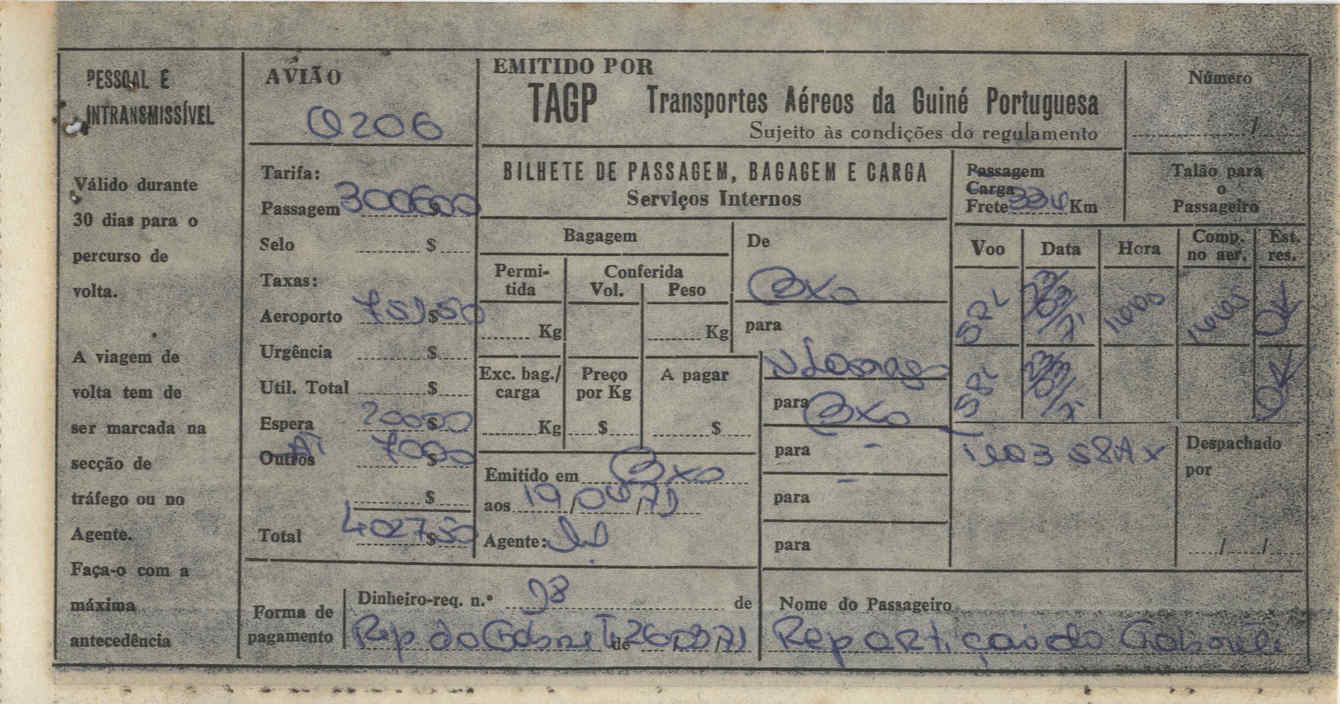 PESSOAL E
INTRANSMISSÍVEL
Válido durante
30 dias para o
percurso de
volta.
A viagem de
volta tem de
ser marcada na
secção de
tráfego ou no
Agente.
Faça-o com a
máxima
antecedência
AVIÃO
Q206
Tarifa:
Passagem 300$00
Selo $
Taxas:
Aeroporto 75$50
Urgência $
Util. Total $
Espera $
Outros $
$
Total $
EMITIDO POR
TAGP Transportes Aéreos da Guiné Portuguesa
Sujeito às condições do regulamento
Número
/
BILHETE DE PASSAGEM, BAGAGEM E CARGA
Serviços Internos
Passagem
Carga
Frete Km
Talão para
o
Passageiro
Bagagem
Permi-
tida
Conferida
Vol. Peso
Kg Kg
Exc. bag./
carga
Preço
por Kg
A pagar
Kg $ $
Emitido em Bxo
aos 19/04/71
Agente:
De
Bxo
para
para
Bxo
para
para
para
Voo Data Hora Comp.
no aer. Est.
res.
SPL OK
SPL OK
Despachado
por
/ /
Forma de
pagamento
Dinheiro-req. n.º 98 de
Rep do Gabinete de
Nome do Passageiro
Repartição do Gabinete